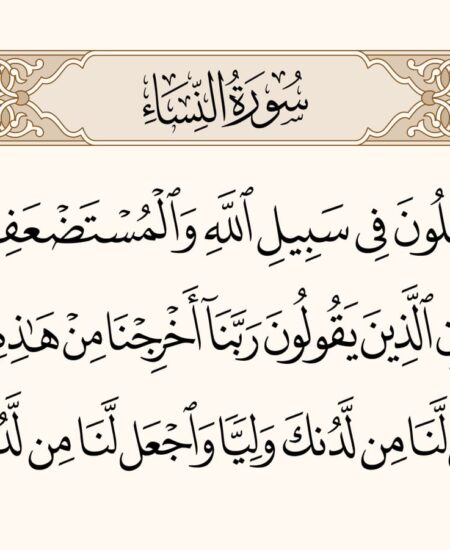 سُورَةُ النِّسَاءِ
لُونَ فِى سَبِيلِ ٱللَّهِ وَٱلْمُسْتَضْعَفِ
ٱلَّذِينَ يَقُولُونَ رَبَّنَآ أَخْرِجْنَا مِنْ هَـٰذِهِ
لَّنَا مِن لَّدُنكَ وَلِيًّا وَٱجْعَل لَّنَا مِن لَّدُ